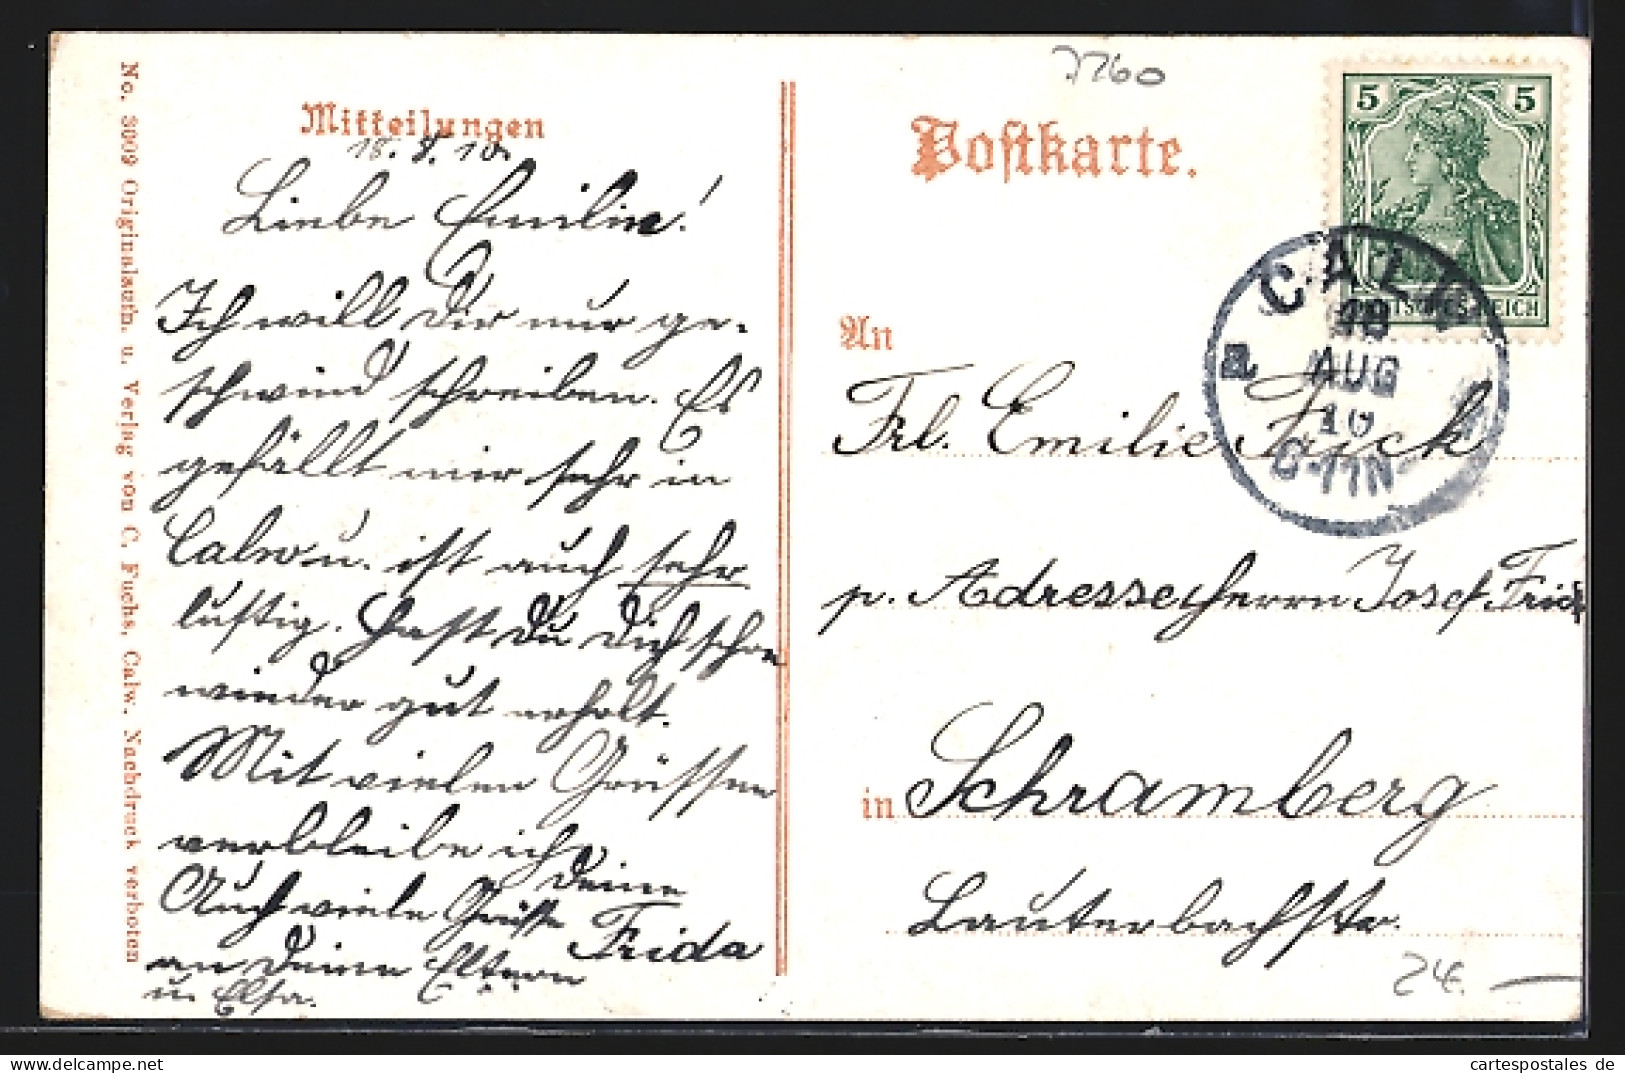 No. 8009 Originalaufn. u. Verlag von C. Fuchs, Calw. Nachdruck verboten
Mitteilungen
18. 8. 10.
Liebe Emilie!
Ich will Dir nur ge-
schwind schreiben. Es
gefällt mir sehr in
Calw u. ist auch sehr
lustig. Hast Du Dich schon
wieder gut erholt.
Mit vielen Grüssen
verbleibe ich
Deine
Frida
Auch viele Grüsse
an Deine Eltern
u. Elsa.
7260
Postkarte.
5 5
DEUTSCHES REICH
CALW
18
AUG
10
6-7 N
An
Frl. Emilie
p. Adresse Herrn Josef
in Schramberg
Lauterbachstr.
24.—
cartespostales de